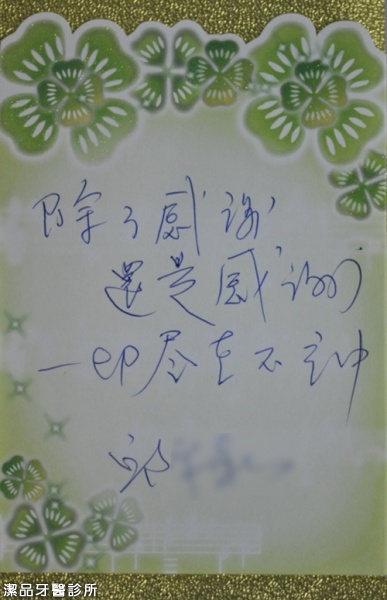 除了感謝
還是感謝
一切盡在不言中
邱
潔品牙醫診所